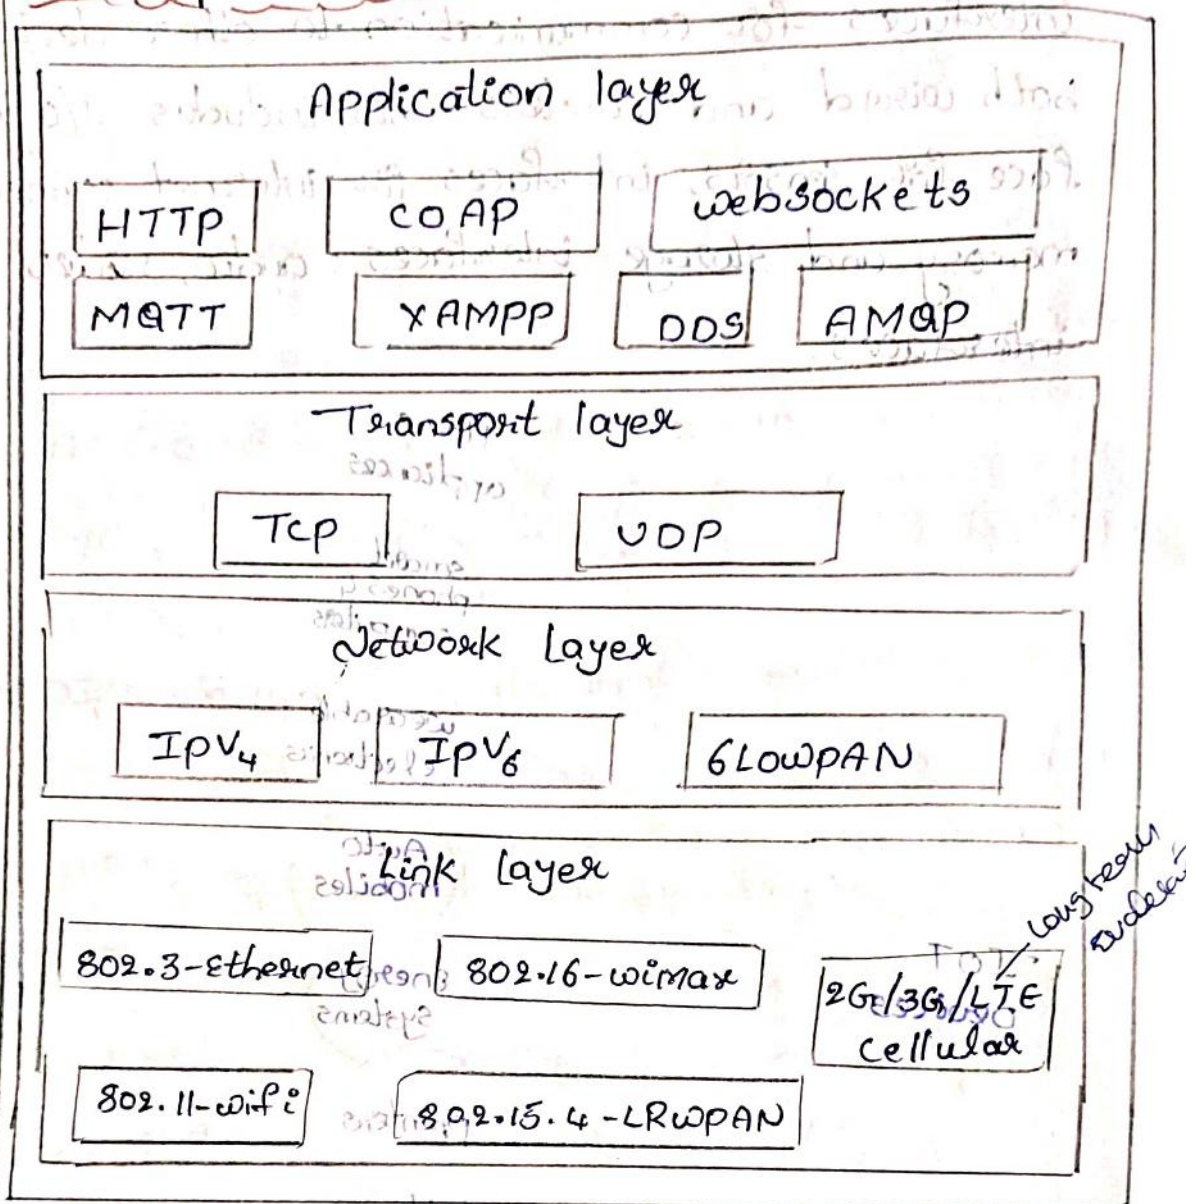 Application layer
HTTP COAP websockets
MQTT XAMPP DDS AMQP
Transport layer
TCP UDP
Network Layer
IPV4 IPV6 6LOWPAN
Link layer
Long team
802.3-Ethernet 802.16-wimax 2G/3G/LTE
cellular
802.11-wifi 802.15.4-LRWPAN